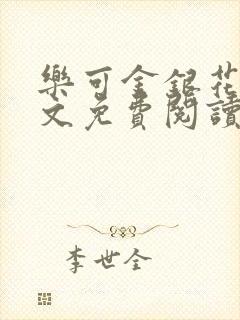 樂可金銀花
文免費閱讀
李世全